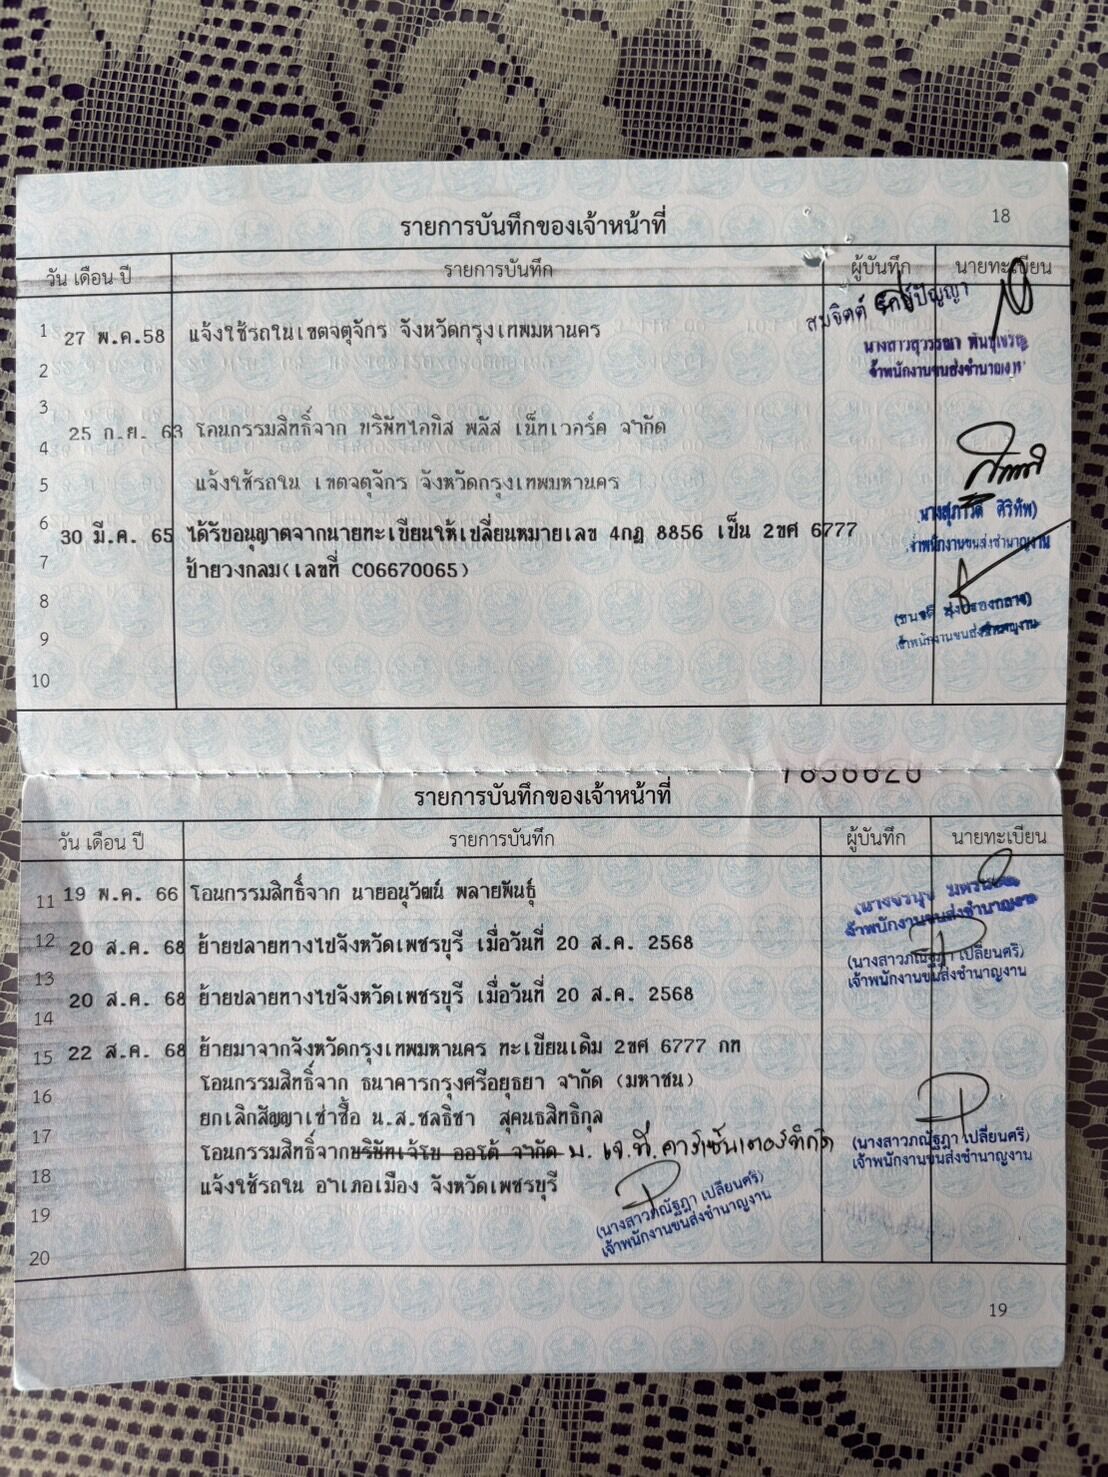 18
รายการบันทึกของเจ้าหน้าที่
วัน เดือน ปี รายการบันทึก ผู้บันทึก นายทะเบียน
1 27 พ.ค.58 แจ้งใช้รถในเขตจตุจักร จังหวัดกรุงเทพมหานคร
สมจิตต์
นางสาวสุวรรณา
เจ้าพนักงานขนส่งชำนาญงาน
2
3
25 ก.ย. 63 โอนกรรมสิทธิ์จาก บริษัทไอทิส พลัส เน็ทเวอร์ค จำกัด
4
5 แจ้งใช้รถใน เขตจตุจักร จังหวัดกรุงเทพมหานคร
นางสุภาวดี ศิริทัพ)
เจ้าพนักงานขนส่งชำนาญงาน
6 30 มี.ค. 65 ได้รับอนุญาตจากนายทะเบียนให้เปลี่ยนหมายเลข 4กฎ 8856 เป็น 2ขศ 6777
7 ป้ายวงกลม(เลขที่ C06670065)
8
เจ้าพนักงานขนส่งชำนาญงาน
9
10
7856626
รายการบันทึกของเจ้าหน้าที่
วัน เดือน ปี รายการบันทึก ผู้บันทึก นายทะเบียน
11 19 พ.ค. 66 โอนกรรมสิทธิ์จาก นายอนุวัฒน์ พลายพันธุ์
เจ้าพนักงานขนส่งชำนาญงาน
12 20 ส.ค. 68 ย้ายปลายทางไปจังหวัดเพชรบุรี เมื่อวันที่ 20 ส.ค. 2568
(นางสาวภณัฐฎา เปลี่ยนศรี)
เจ้าพนักงานขนส่งชำนาญงาน
13 20 ส.ค. 68 ย้ายปลายทางไปจังหวัดเพชรบุรี เมื่อวันที่ 20 ส.ค. 2568
14
15 22 ส.ค. 68 ย้ายมาจากจังหวัดกรุงเทพมหานคร ทะเบียนเดิม 2ขศ 6777 กท
โอนกรรมสิทธิ์จาก ธนาคารกรุงศรีอยุธยา จำกัด (มหาชน)
16 ยกเลิกสัญญาเช่าซื้อ น.ส.ชลธิชา สุคนธสิทธิกุล
17 โอนกรรมสิทธิ์จากบริษัทเจ้โบ ออโต้ จำกัด บ. เจ.ที.คาร์เซ็นเตอร์จำกัด
(นางสาวภณัฐฎา เปลี่ยนศรี)
เจ้าพนักงานขนส่งชำนาญงาน
18 แจ้งใช้รถใน อำเภอเมือง จังหวัดเพชรบุรี
(นางสาวภณัฐฎา เปลี่ยนศรี)
เจ้าพนักงานขนส่งชำนาญงาน
19
20
19